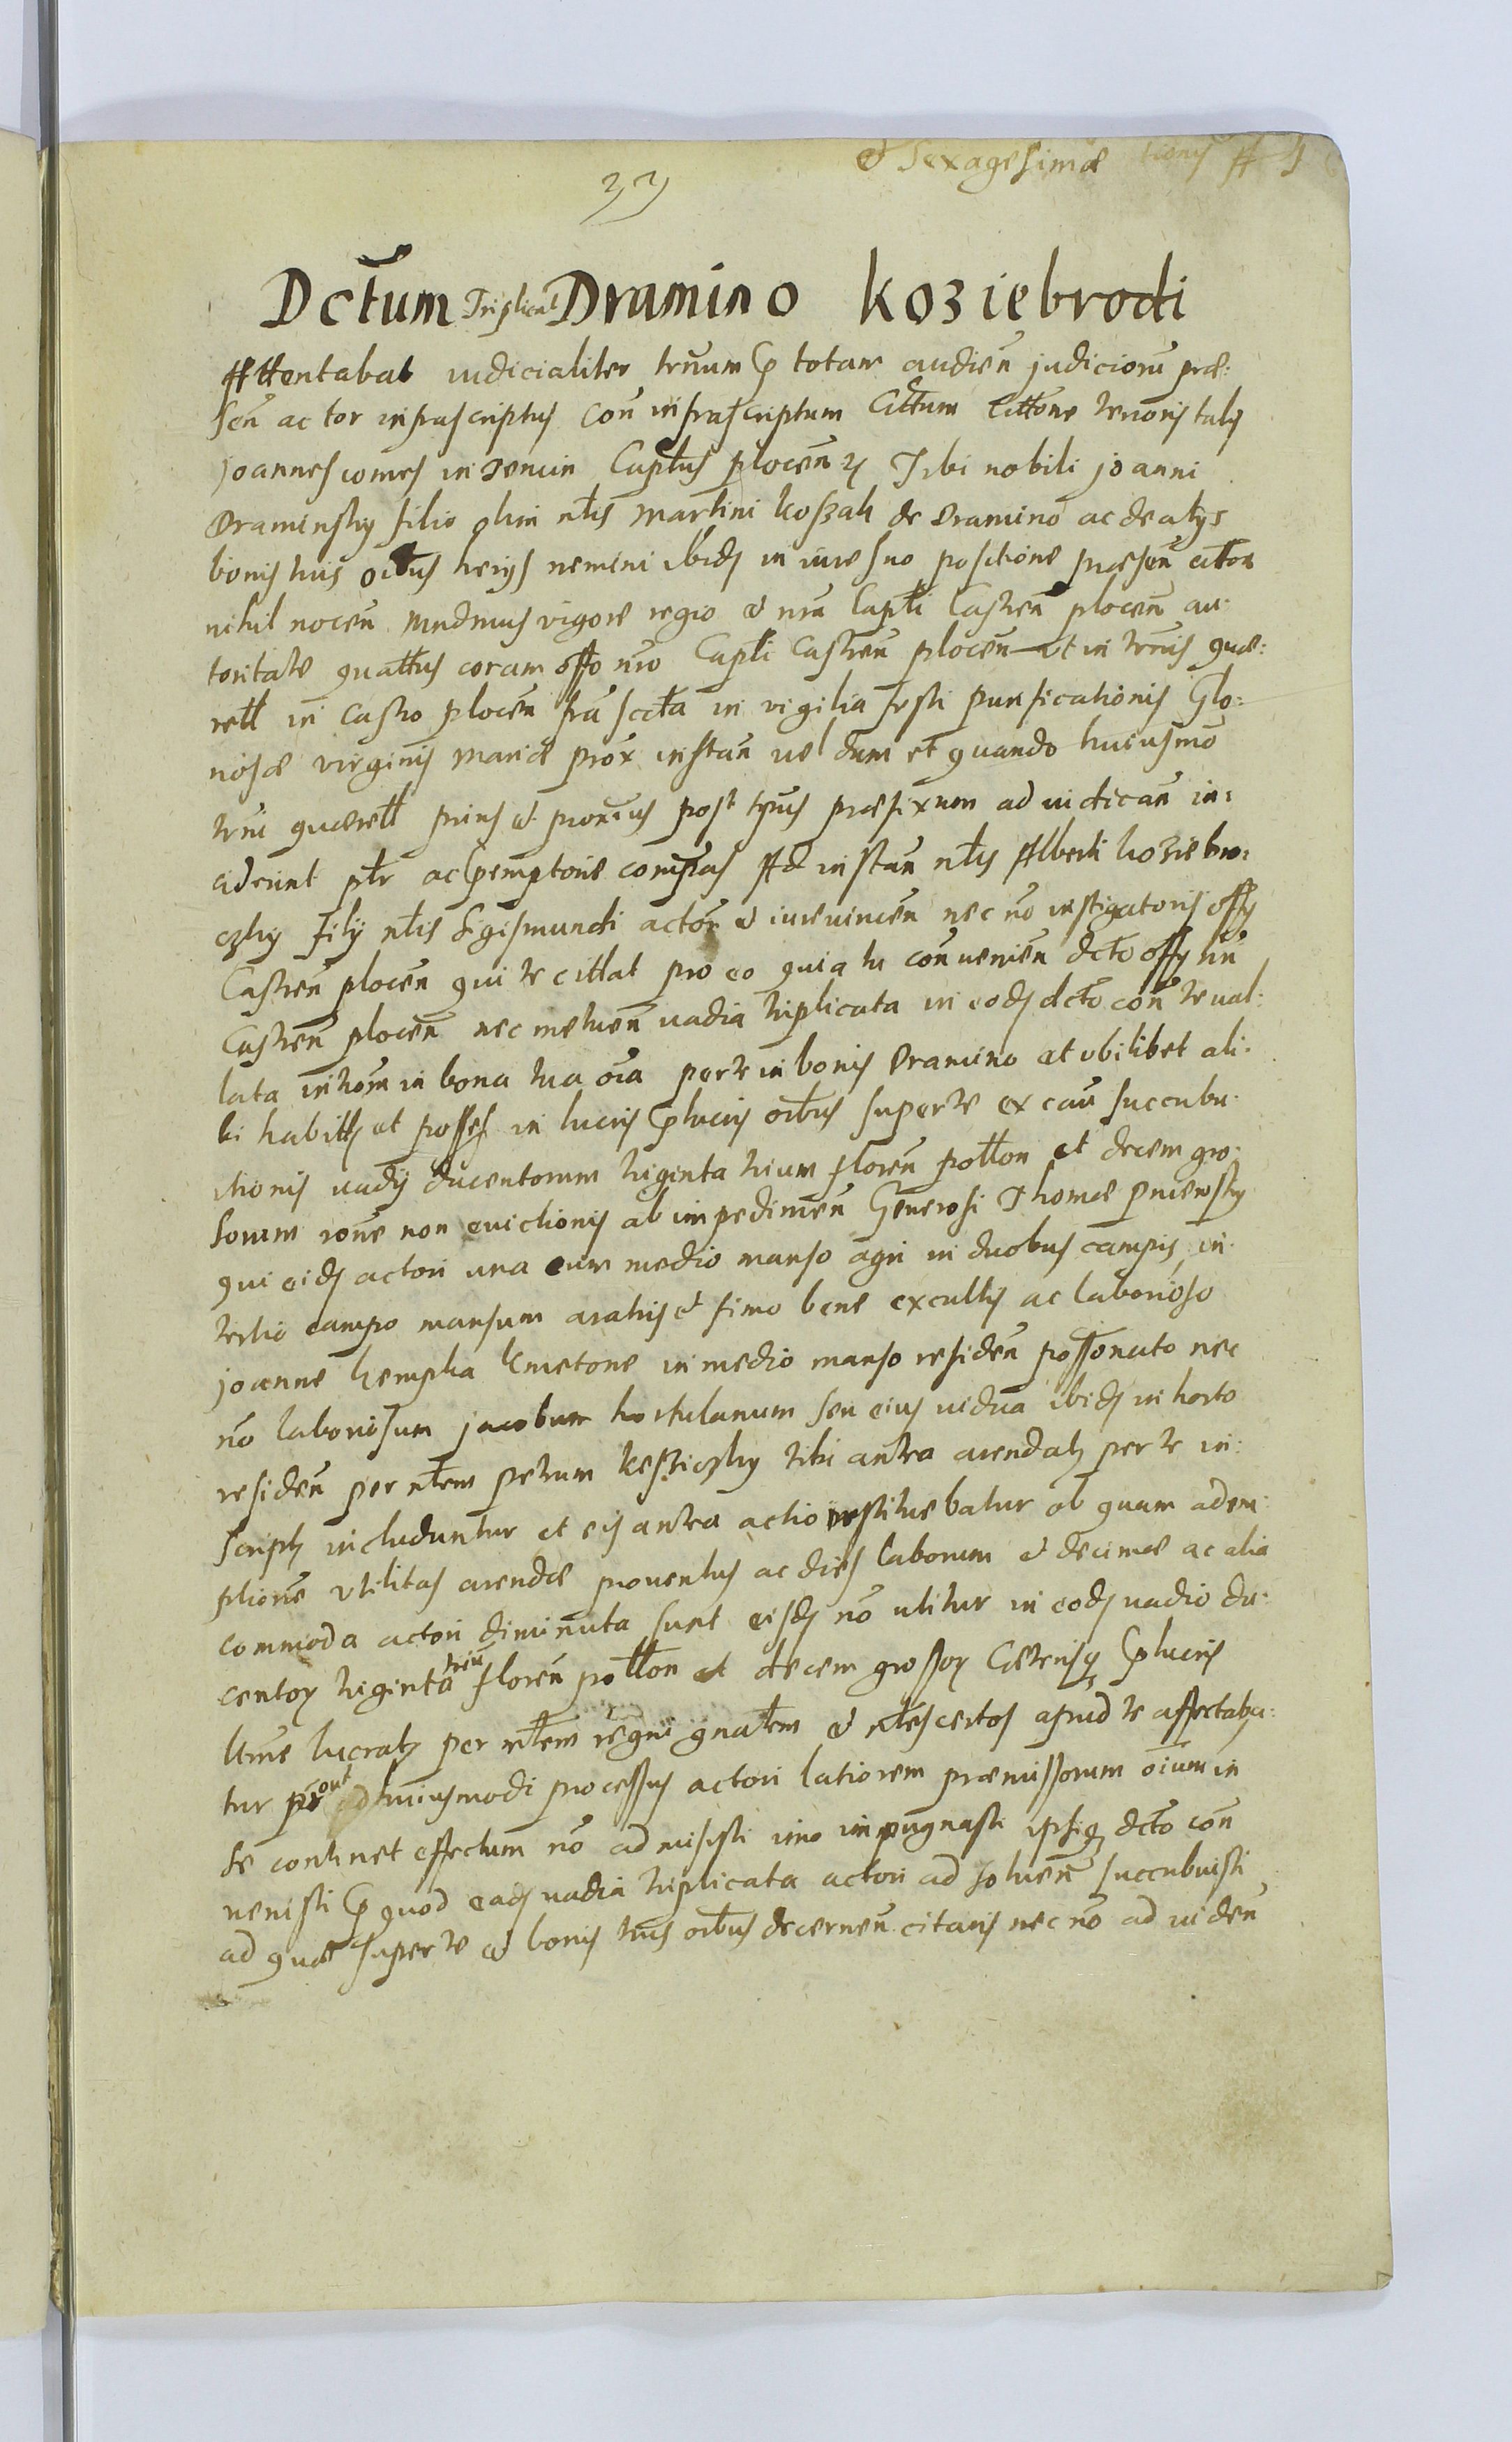 et Sexagesimæ
33
Dctum Triplicat Dramino koziebrodi
Attentabat iudicialiter trnum p totam audien judiciorũ præ:
sen actor infrascriptus con infrascriptum Cittum Cittone tenoris talis
joannes comes in Tenczin Captus plocen Tibi nobili joanni
Draminsky filio olim nlis Martini koszak de Dramino ac de alys
bonis tuis oibus herijs nemini ibidē in iure suo positione præsen citon
nihil nocen Mndmus vigore regio et nra Capti Castren plocen au:
toritate quattus coram offo nro Capti Castren plocen et in trnis quæ:
rell in Castro plocen fra sccta in vigilia festi purificationis Glo:
riosæ virginis Mariæ prox instan vel dum et quando huiusmo
trni querell prius et promus post præfixum ad iudican in:
ciderint ptr ac pemptorie compas Ad instan nlis Alberti koziebro:
czky fily nlis Sigismundi actor et iurevincen nec nõ instigatoris offy
Castren plocen qui te cittat pro eo quia tu convenien dcto offy nri
Castren plocen nec metuen vadia triplicata in eodē dcto con te val:
lata introm in bona tua oia per te in bonis Dramino et ubilibet ali:
bi habitt et posses in lucris plucris oibus super te ex cau succubu:
itionis vadij ducentorum triginta trium floren pollon et decem gro:
sorum rone non evictionis ab impedimen Generosi Thomæ
qui eidē actori una cum medio manso agri in duobus campis, in
tertio campo mansum aratris et fimo bene excultis ac laborioso
joanne kempka kmetone in medio manso residen possonato nec
nõ laboriosum jacobum hortulanum seu eius viduã ibidē in horto
residen per nlem petrum kesziczky tibi antea arendat per te in:
script includuntur et eis antea actio restituebatur ob quam adem:
ptione utilitas arendæ proventus ac dies laborum et decimæ ac alia
commoda actori diminuta sunt eisdē nõ utitur in eodē vadio du:
centor triginta triũ floren pollon et decem grossor Cæterisq plucris
ltime lucrat per mlem regni gnalem et nles certos apud te affectaba:
tur prout huiusmodi processus actori latiorem præmissorum oium in
se continet effectum nõ admisisti imo impugnasti ipsiq dcto con
venisti p quod eadē vadia triplicata actori ad solven succubuisti
ad quæ super te et bonis tuis oibus decernen citaris nec nõ ad viden